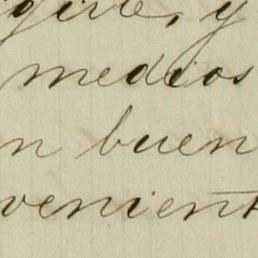 y
medios
n buen
venient